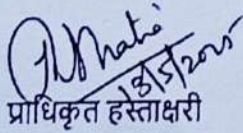 18/5/2015
प्राधिकृत हस्ताक्षरी